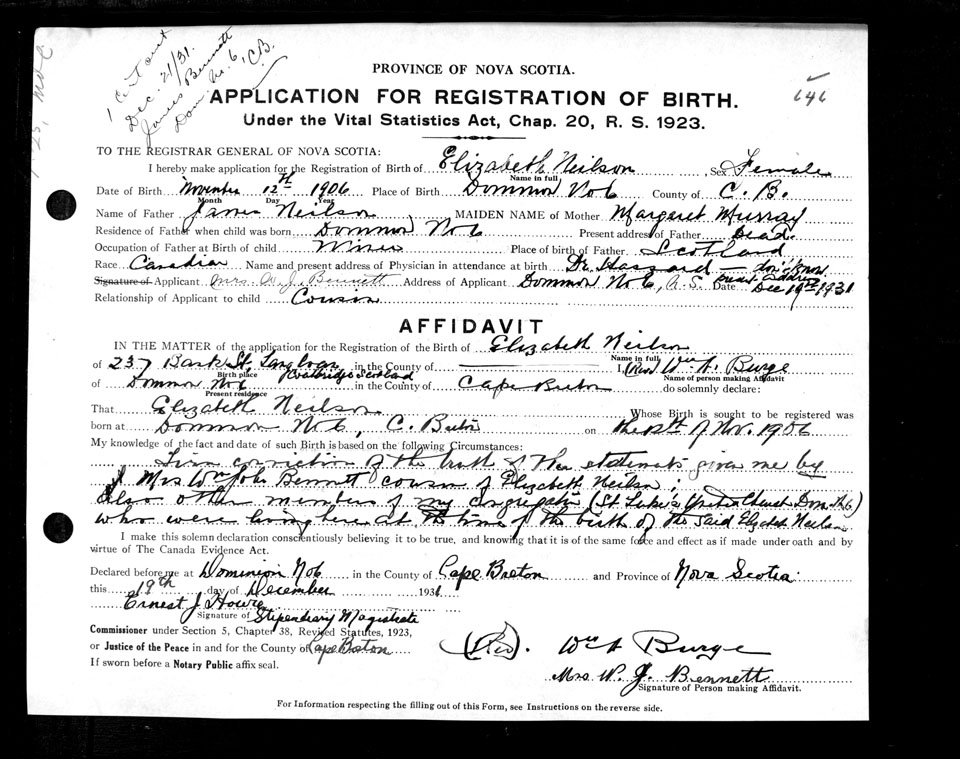 1 Cert out
Dec. 21/31.
James Bennett
Dom. No. 6, C.B.
646
PROVINCE OF NOVA SCOTIA.
APPLICATION FOR REGISTRATION OF BIRTH.
Under the Vital Statistics Act, Chap. 20, R. S. 1923.
TO THE REGISTRAR GENERAL OF NOVA SCOTIA:
I hereby make application for the Registration of Birth of Elizabeth Neilson Sex Female
Name in full
Date of Birth November 12th 1906 Place of Birth Dominion No 6 County of C. B.
Month Day Year
Name of Father James Neilson MAIDEN NAME of Mother Margaret Murray
Residence of Father when child was born Dominion No 6 Present address of Father Dead.
Occupation of Father at Birth of child Miner Place of birth of Father Scotland
Race Canadian Name and present address of Physician in attendance at birth Dr. Hazzard — don't know
Signature of Applicant Mrs W. J. Bennett Address of Applicant Dominion No 6, Date Dec 19th 1931
Relationship of Applicant to child Couson
AFFIDAVIT
IN THE MATTER of the application for the Registration of the Birth of Elizabeth Neilson
Name in full
of 237 Bank St. Langloan Coatbridge Scotland in the County of I, (Rev) Wm A. Burge
Birth place Name of person making Affidavit
of Dominion No 6 in the County of Cape Breton do solemnly declare:
Present residence
That Elizabeth Neilson Whose Birth is sought to be registered was
born at Dominion No 6, C. Breton on the 12th of Nov. 1906
My knowledge of the fact and date of such Birth is based on the following Circumstances:
Firm conviction of the truth of the statements given me by
Mrs Wm John Bennett cousin of Elizabeth Neilson;
also other members of my congregation (St Luke's United Church Dom No 6)
who were living here at the time of the birth of the said Elizabeth Neilson.
I make this solemn declaration conscientiously believing it to be true, and knowing that it is of the same force and effect as if made under oath and by
virtue of The Canada Evidence Act.
Declared before me at Dominion No 6 in the County of Cape Breton and Province of Nova Scotia
this 19th day of December 1931
Ernest J
Signature of Stipendiary Magistrate
Commissioner under Section 5, Chapter 38, Revised Statutes, 1923,
or Justice of the Peace in and for the County of Cape Breton
If sworn before a Notary Public affix seal.
(Rev). Wm A Burge
Mrs W. J. Bennett
Signature of Person making Affidavit.
For Information respecting the filling out of this Form, see Instructions on the reverse side.